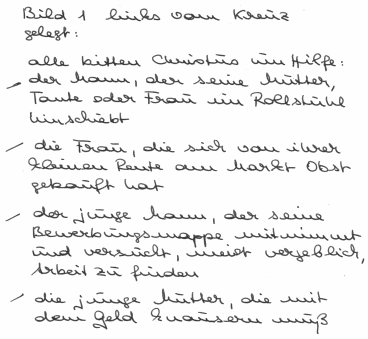 Bild 1 links vom Kreuz
gelegt:
alle bitten Christus um Hilfe:
- der Mann, der seine Mutter,
Tante oder Frau im Rollstuhl
hinschiebt
- die Frau, die sich von ihrer
kleinen Rente am Markt Obst
gekauft hat
- der junge Mann, der seine
Bewerbungsmappe mitnimmt
und versucht, meist vergeblich,
Arbeit zu finden
- die junge Mutter, die mit
dem Geld knausern muß